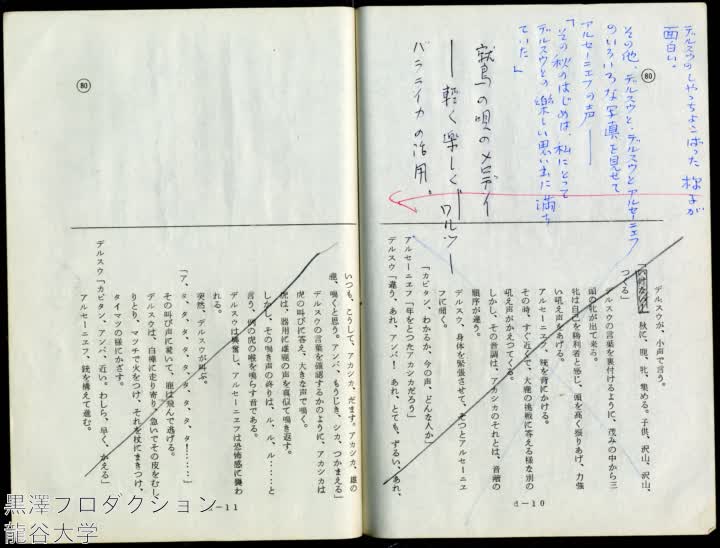 デルスウのしゃっちょこばった様子が
面白い。
その他、デルスウと、デルスウとアルセーニエフ
のいろいろな写真を見せて
アルセーニエフの声——
「その秋のはじめは、私にとって
デルスウとの楽しい思い出に満ち
ていた」
鷲鳥の唄のメロディ
—軽く楽しくワルツ—
バラライカの活用。
80
デルスウが、小声で言う。
「いけない！ 秋に、鹿、牝、集める。子供、沢山、沢山、
つくる」
デルスウの言葉を裏付けるように、茂みの中から三
頭の牝が出て来る。
牡は自分を勝利者と感じ、頭を高く振りあげ、力強
い吼え声をあげる。
アルセーニエフ、銃を背にかける。
その時、すぐ近くで、大鹿の挑戦に答える様な別の
吼え声がかえってくる。
しかし、その音調は、アカシカのそれとは、音階の
順序が違う。
デルスウ、身体を緊張させて、そっとアルセーニエ
フに聞く。
「カピタン、わかるか、今の声、どんな人か」
アルセーニエフ「年をとったアカシカだろう」
デルスウ「違う、あれ、アンバ！ あれ、とても、ずるい、あれ、
d—10
80
いつも、こうして、アカシカ、だます。アカシカ、雄の
鹿、鳴くと思う。アンバ、もうじき、シカ、つかまえる」
デルスウの言葉を確認するかのように、アカシカは
虎の叫びに答え、大きな声で鳴く。
虎は、器用に雄鹿の声を真似て鳴き返す。
しかし、その鳴き声の終りは、ル、ル、ル……と
言う、例の虎の喉を鳴らす音である。
デルスウは興奮し、アルセーニエフは恐怖感に襲わ
れる。
突然、デルスウが叫ぶ。
「ア、タ、タ、タ、タ、タ、タ、タ、タ！……」
その叫び声に驚いて、鹿は飛んで逃げる。
デルスウは、白樺に走り寄り、急いでその皮をむし
りとり、マッチで火をつけ、それを杖にまきつけ、
タイマツの様にかざす。
デルスウ「カピタン、アンバ、近い。わしら、早く、かえる」
アルセーニエフ、銃を構えて進む。
—11
黒澤プロダクション
龍谷大学